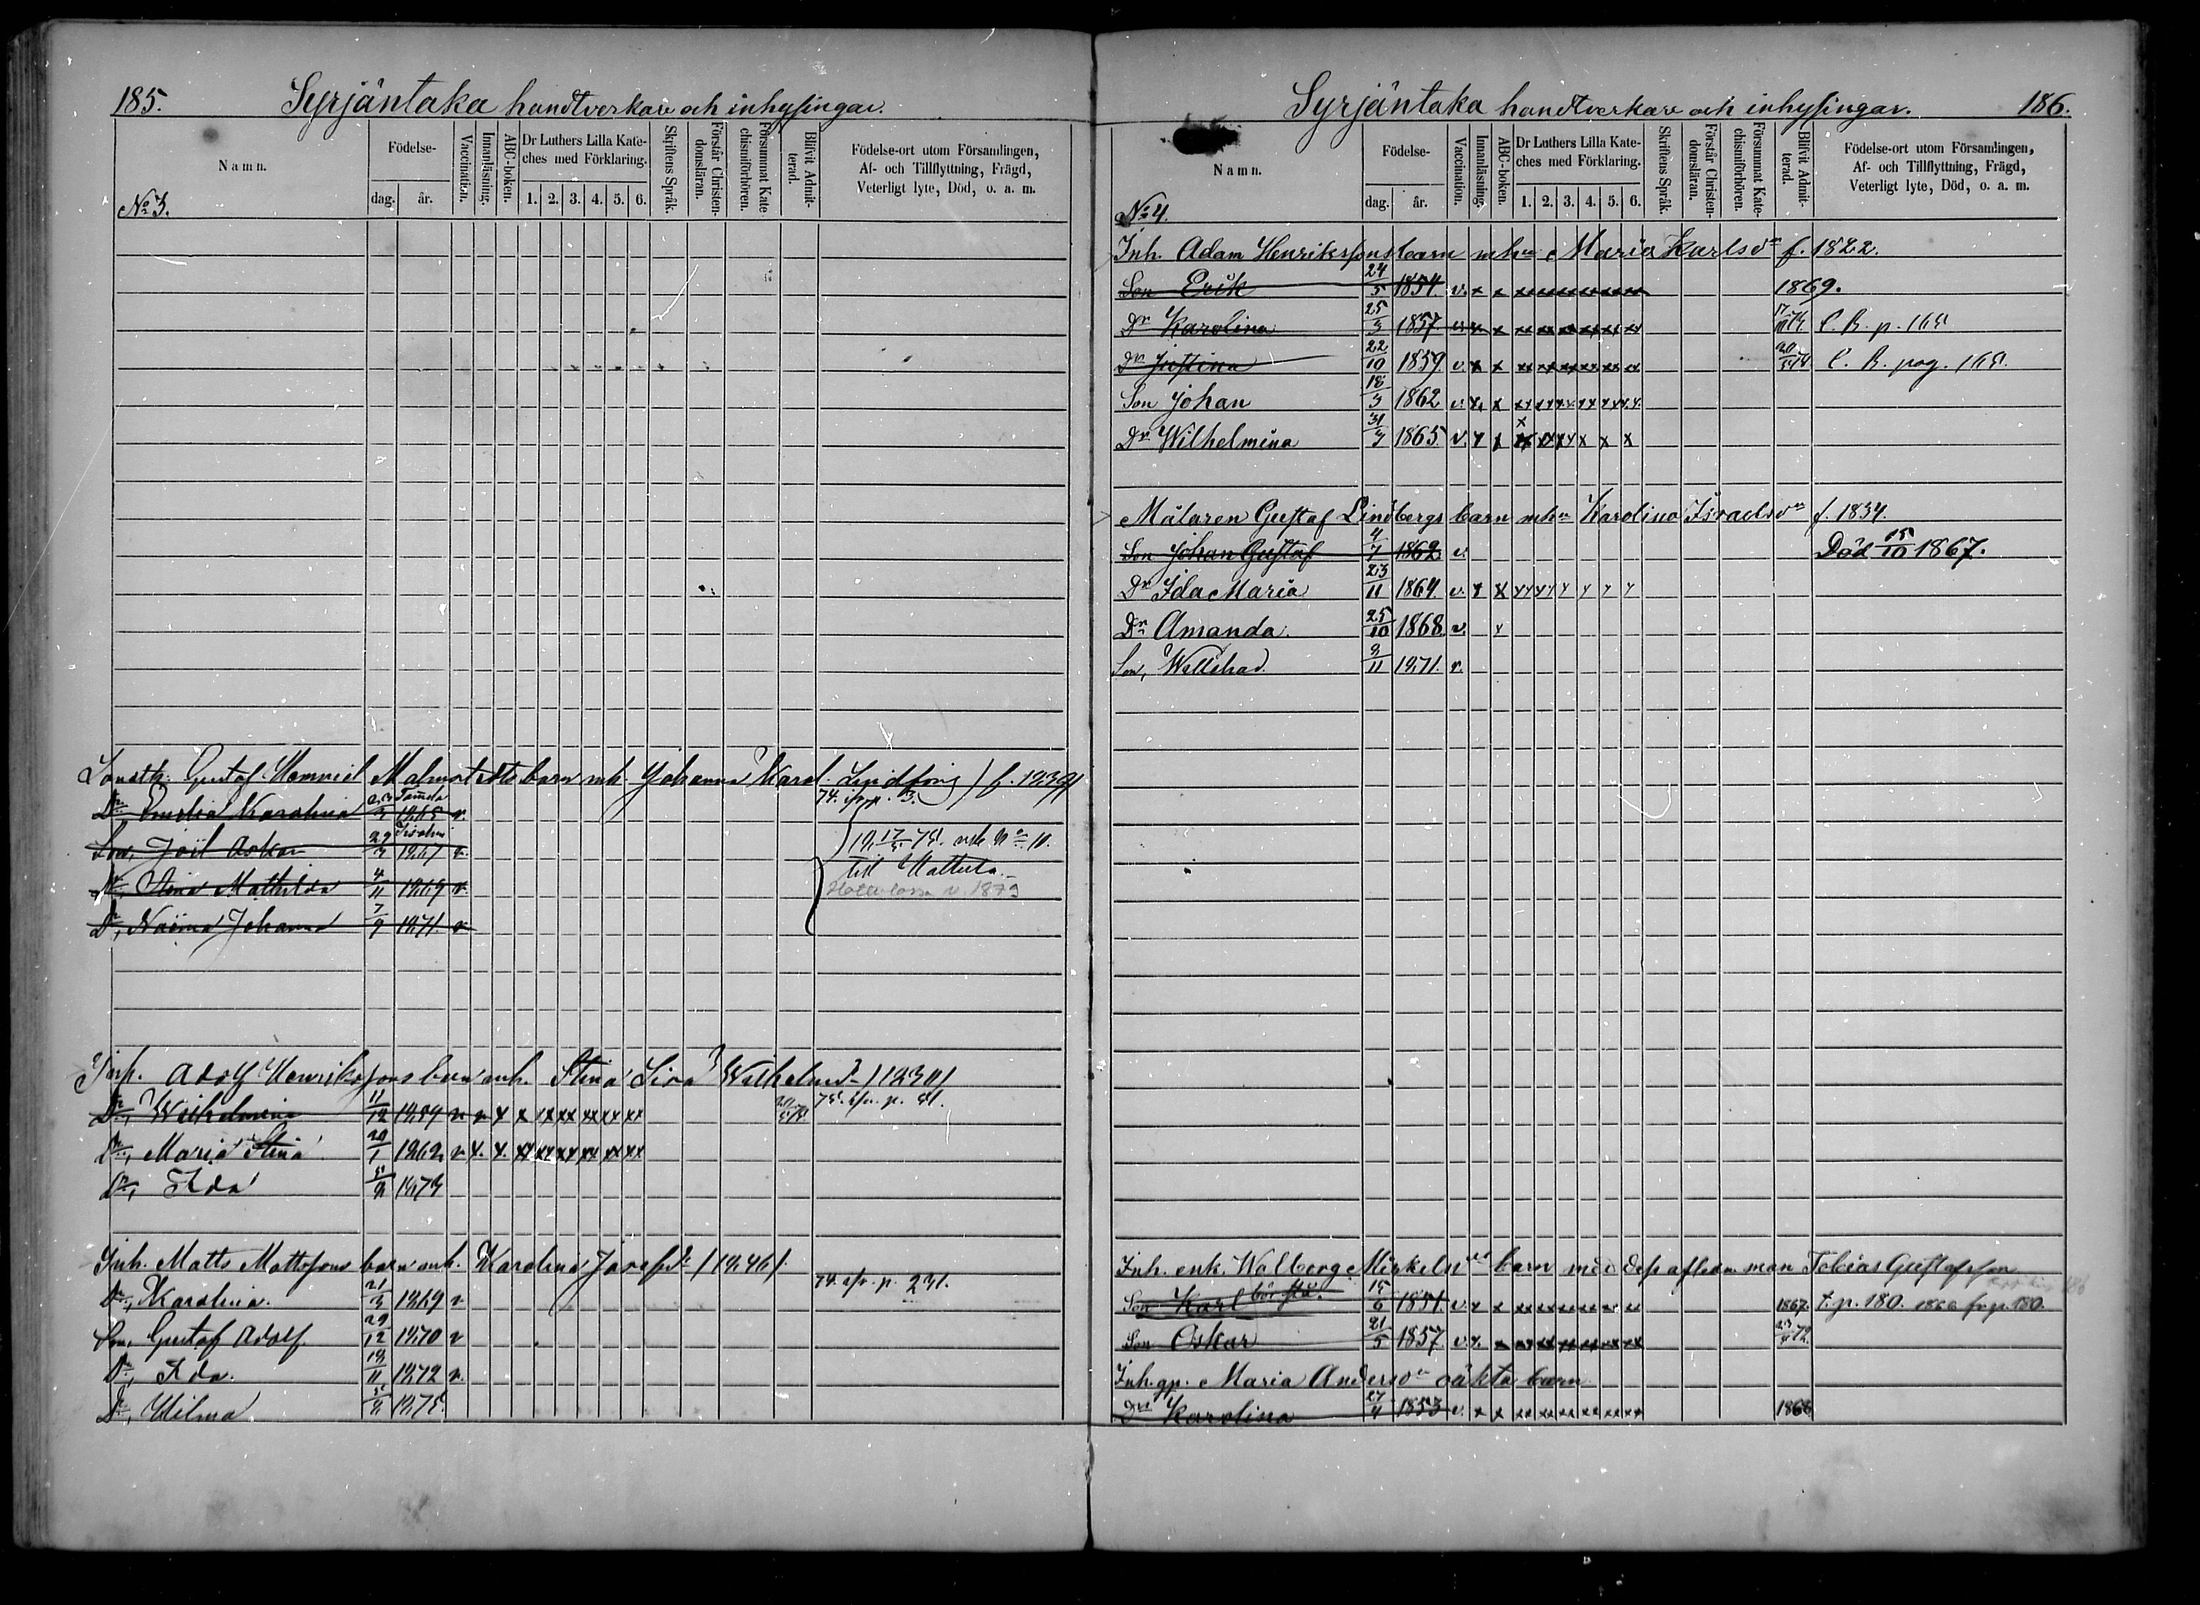 185. Syrjäntaka handtverkare och inhysingar.
Namn.
Födelse-
dag. år.
Vaccination.
Innanläsning.
ABC-boken.
Dr Luthers Lilla Kate-
ches med Förklaring.
1. 2. 3. 4. 5. 6.
Skriftens Språk.
Förstår Christen-
domsläran.
Försummat Kate
chismiförhören.
Blifvit Admit-
terad.
Födelse-ort utom Församlingen,
Af- och Tillflyttning, Frägd,
Veterligt lyte, Död, o. a. m.
No 3.
Gustaf Malmstedts barn mh. Johanna Karol. f. 1839
Dr, Emelia Karolina 1865 v. 74. ifr. p. 3.
Son, Joël Oskar 29/3 1867 v.
till Hattula.
Dr, Stina Mathilda 4/11 1869 v. 1879
Dr, Naëma Johanna 7/9 1871. v
Inh. Adolf Henrikssons barn mh. Stina Lisa Wilhelmsdr / 1830/
Dr, Wilhelmina 11/12 1859 v v x x xx xx xx xx xx 75. ifr. p. 81.
Dr, Maria Stina 20/1 1862 v x. x. xx xx xx xx xx xx
Dr, Ida 1873
Inh. Matts Mattssons barn mh. Karolina Josefsdr / 1846/.
Dr, Karolina. 21/3 1869 v 74. ifr. p. 231.
Son, Gustaf Adolf 29/12 1870 v
Dr, Ida. 18/11 1872 v.
Dr, Hilma 1875.
Syrjäntaka handtverkare och inhysingar. 186.
Namn.
Födelse-
dag. år.
Vaccination.
Innanläsning.
ABC-boken.
Dr Luthers Lilla Kate-
ches med Förklaring.
1. 2. 3. 4. 5. 6.
Skriftens Språk.
Förstår Christen-
domsläran.
Försummat Kate-
chismiförhören.
Blifvit Admit-
terad.
Födelse-ort utom Församlingen,
Af- och Tillflyttning, Frägd,
Veterligt lyte, Död, o. a. m.
No 4.
Inh. Adam Henrikssons barn mhu Maria Karlsdr f. 1822.
Son Erik 24/5 1854 v. x x xx xx xx xx xx xx 1869.
Dr Karolina 25/3 1857 v. x x xx xx xx xx xx xx C. B. p. 165
Dr Justina 22/10 1859 v. x x xx xx xx xx xx xx C. B. pag. 165.
Son Johan 18/3 1862 v. x. x xx xx xx xx xx xx.
Dr Wilhelmina 31/3 1865 v. x x xx xx xx x x x
Målaren Gustaf Lindbergs barn mhu Karolina Israelsdr f. 1834.
Son Johan Gustaf 4/7 1862 v. Död 15/10 1867.
Dr Ida Maria 23/11 1864 v. x x xx xx x x x x
Dr Amanda. 25/10 1868 v. x
Son, 9/11 1871. v.
Inh. enk. Walborg Mickelsdrs barn med dess afledne man Tobias Gustafsson
Son Karl börsta. 15/6 1851. v. x x xx xx xx xx x. xx 1867. t. p. 180. 1868 fr. p. 180.
Son Oskar 21/5 1857. v. x. x xx xx xx xx xx xx 23/4 72.
Inh. gp. Maria Andersdr oäkta barn
Dr Karolina 27/4 1853 v. x x xx xx xx xx xx xx 1868